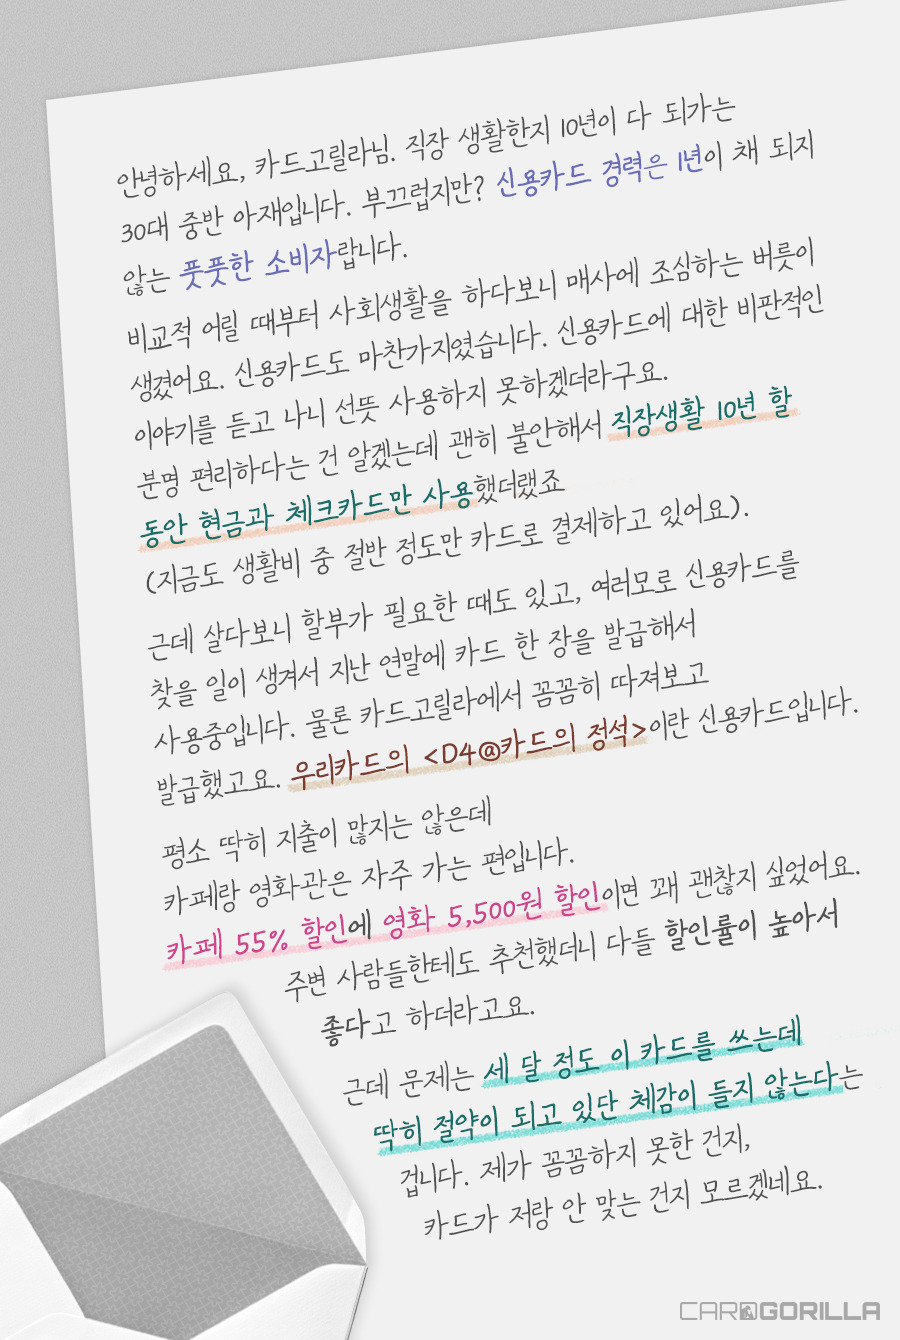 안녕하세요, 카드고릴라님. 직장 생활한지 10년이 다 되가는
30대 중반 아재입니다. 부끄럽지만? 신용카드 경력은 1년이 채 되지
않는 풋풋한 소비자랍니다.
비교적 어릴 때부터 사회생활을 하다보니 매사에 조심하는 버릇이
생겼어요. 신용카드도 마찬가지였습니다. 신용카드에 대한 비판적인
이야기를 듣고 나니 선뜻 사용하지 못하겠더라구요.
분명 편리하다는 건 알겠는데 괜히 불안해서 직장생활 10년 할
동안 현금과 체크카드만 사용했더랬죠
(지금도 생활비 중 절반 정도만 카드로 결제하고 있어요).
근데 살다보니 할부가 필요한 때도 있고, 여러모로 신용카드를
찾을 일이 생겨서 지난 연말에 카드 한 장을 발급해서
사용중입니다. 물론 카드고릴라에서 꼼꼼히 따져보고
발급했고요. 우리카드의 <D4@카드의 정석>이란 신용카드입니다.
평소 딱히 지출이 많지는 않은데
카페랑 영화관은 자주 가는 편입니다.
카페 55% 할인에 영화 5,500원 할인이면 꽤 괜찮지 싶었어요.
주변 사람들한테도 추천했더니 다들 할인률이 높아서
좋다고 하더라고요.
근데 문제는 세 달 정도 이 카드를 쓰는데
딱히 절약이 되고 있단 체감이 들지 않는다는
겁니다. 제가 꼼꼼하지 못한 건지,
카드가 저랑 안 맞는 건지 모르겠네요.
CARDGORILLA